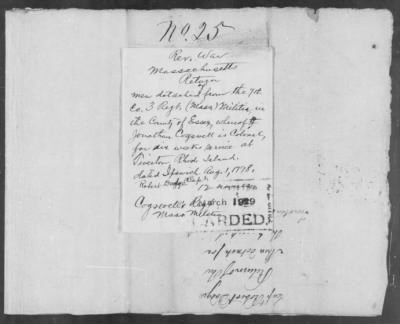 No. 25
Rev. War
Massachusetts
Return
men detached from the 7th
Co. 3 Regt. (Mass.) Militia, in
the County of Essex, whereof
Jonathan Cogswell is Colonel,
for six weeks service at
Tiverton Rhode Island.
dated Ipswich Aug. 1, 1778.
Robert Dodge Capt.
12
Cogswell's Regt.
Mass Militia
March 1929
CARDED.
Capt Robert Dodge
Return of the
Men detach for